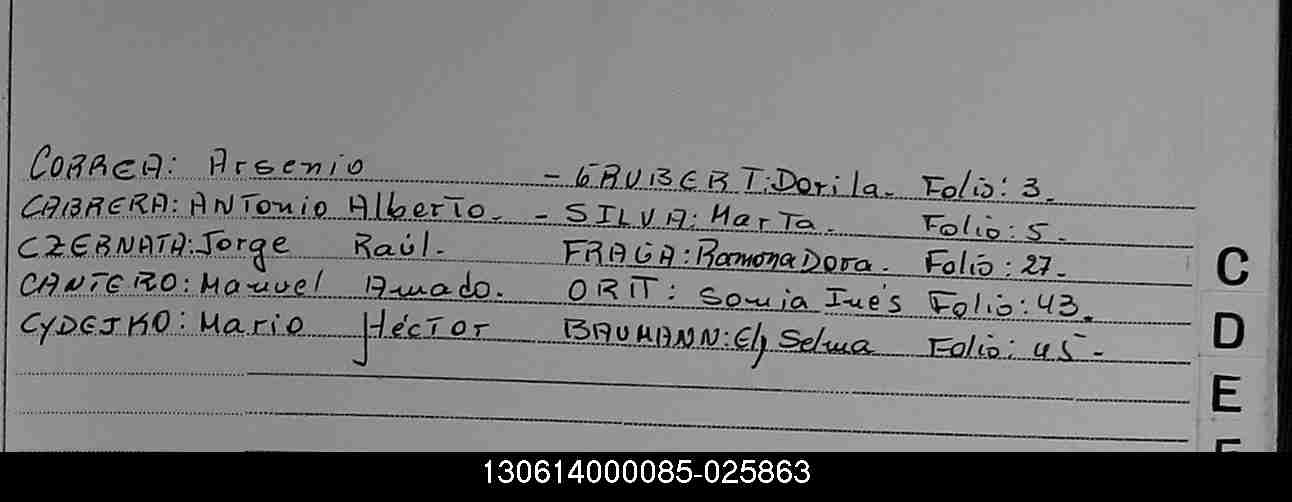 CORREA: Arsenio - GRUBERT: Dorila. Folio: 3.
CABRERA: ANTonio Alberto. - SILVA: Marta. Folio: 5.
CZERNATA: Jorge Raúl. FRAGA: Ramona Dora. Folio: 27.
CANTERO: Manuel Amado. ORIT: Sonia Inés Folio: 43.
CYDEJKO: Mario Héctor BAUMANN: Ely Selma Folio: 45.
C
D
E
130614000085-025863